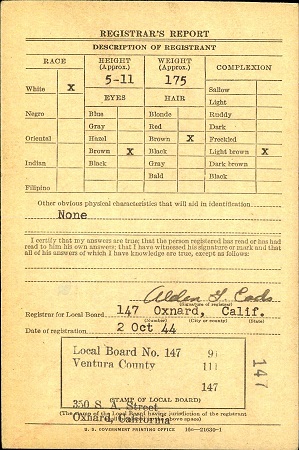 REGISTRAR'S REPORT
DESCRIPTION OF REGISTRANT
RACE HEIGHT (Approx.) WEIGHT (Approx.) COMPLEXION
5-11 175
White X
EYES HAIR
Sallow
Light
Negro Blue Blonde Ruddy
Gray Red Dark
Oriental Hazel Brown X Freckled
Brown X Black Light brown X
Indian Black Gray Dark brown
Bald Black
Filipino
Other obvious physical characteristics that will aid in identification
None
I certify that my answers are true; that the person registered has read or has had
read to him his own answers; that I have witnessed his signature or mark and that
all of his answers of which I have knowledge are true, except as follows:
Alden
(Signature of registrar)
Registrar for Local Board 147 Oxnard, Calif.
(Number) (City or county) (State)
Date of registration 2 Oct 44
Local Board No. 147
Ventura County
111
147
147
(STAMP OF LOCAL BOARD)
350 S. A. Street
(The stamp of the Local Board having jurisdiction of the registrant
Oxnard, California
above space)
U. S. GOVERNMENT PRINTING OFFICE 16—21630-1